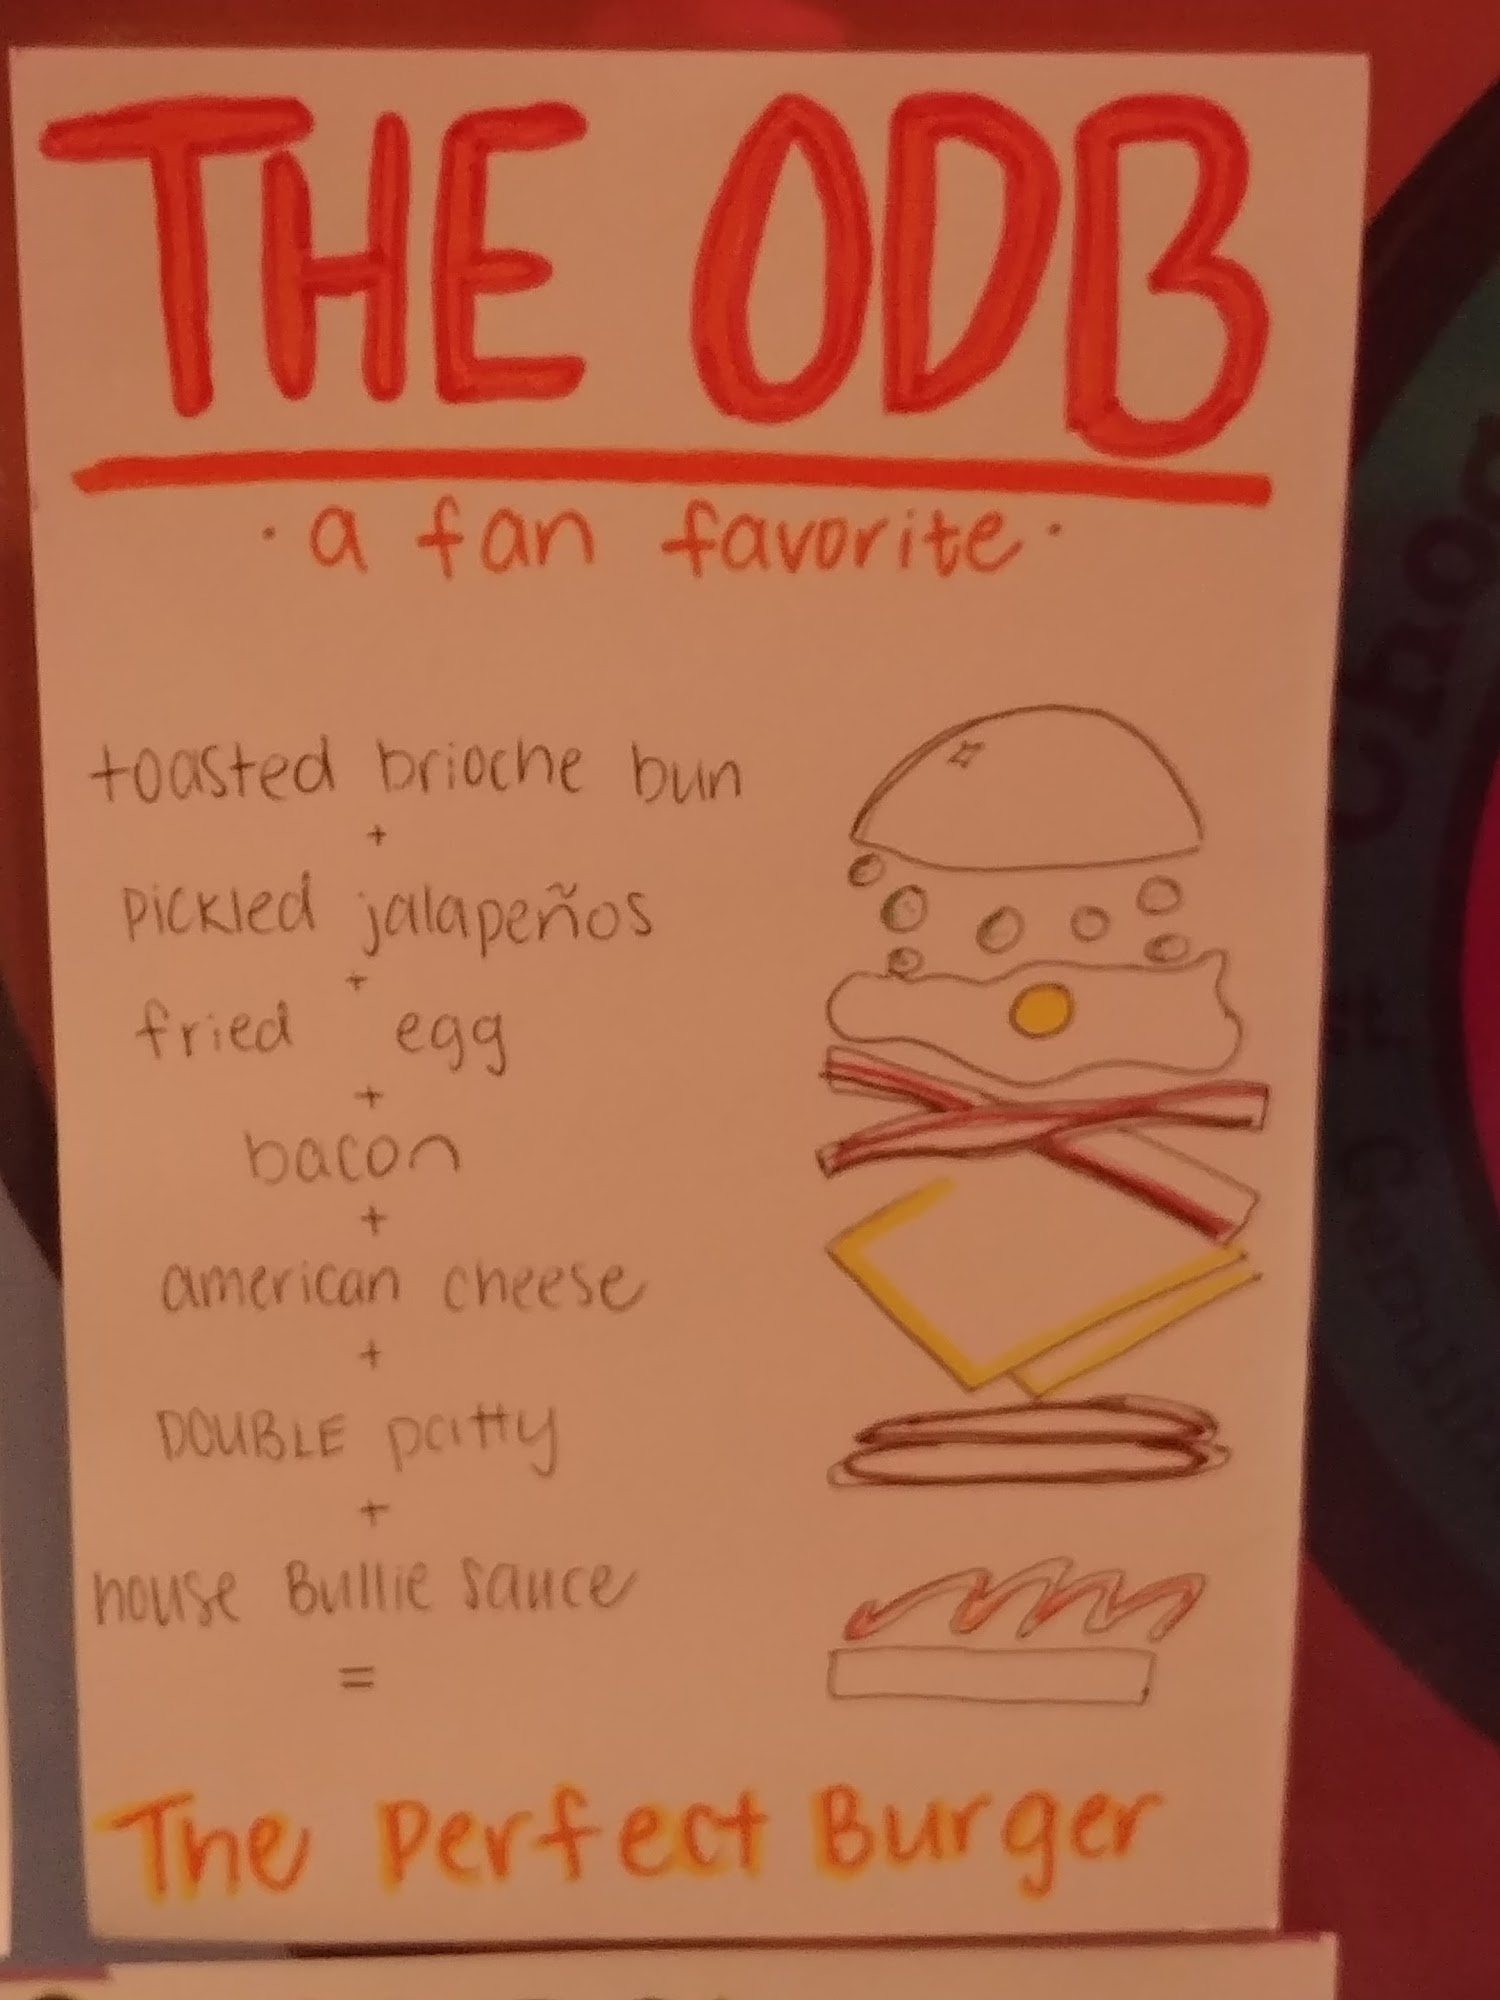 THE ODB
· a fan favorite ·
toasted brioche bun
+
pickled jalapeños
+
fried egg
+
bacon
+
american cheese
+
DOUBLE patty
+
house Bullie sauce
=
The Perfect Burger